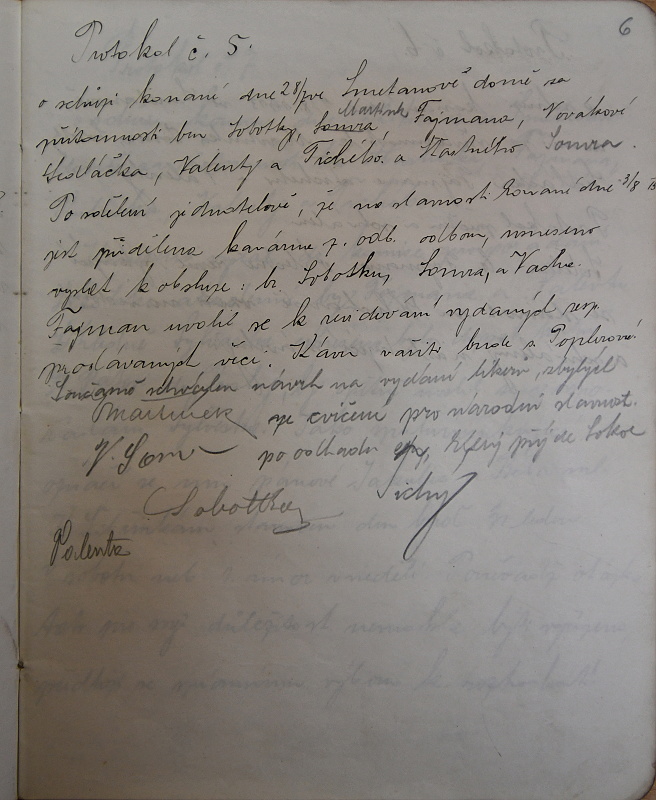 6
Protokol č. 5.
o schůzi konané dne 28/ ve Smetanově domě za
Martinek
přítomnosti br. Sobotky, Somra, Fajmana, Novákové
Sedláčka, Valenty a Tichého a Šťastného Somra.
Po sdělení jednatelově, že na slavnosti konané dne 3/8
jest přidělena kavárna p. odb. odboru, usneseno
vyslat k obsluze: br. Sobotku, Somra, a Vacka.
Fajman uvolil se k revidování vydaných resp.
prodávaných věcí. Kávu vařiti bude s. Poplerová
Současně schválen návrh na vydání likérů, zbylých
Martinek ze cvičení pro národní slavnost.
V. Somr po odhadu ceny, který přijde Sokol
Sobotka Tichý
Valenta